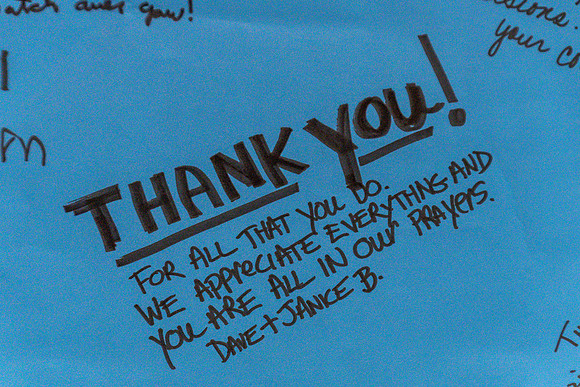 over you!
your
M
THANK YOU!
FOR ALL THAT YOU DO.
WE APPRECIATE EVERYTHING AND
YOU ARE ALL IN OUR PRAYERS.
DAVE + JANICE B.